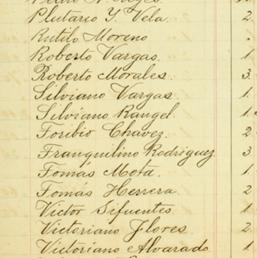 Plutario Y. Vela 2
Rutilo Moreno
Roberto Vargas 1
Roberto Morales. 3
Silviano Vargas. 1
Silviano Rangel 1
Toribio Chavez. 2
Tranquilino Rodriguez 3
Tomás Mota. 1
Tomás Herrera 2
Victor Sifuentes 1
Victoriano Flores 2
Victoriano Alvarado 1